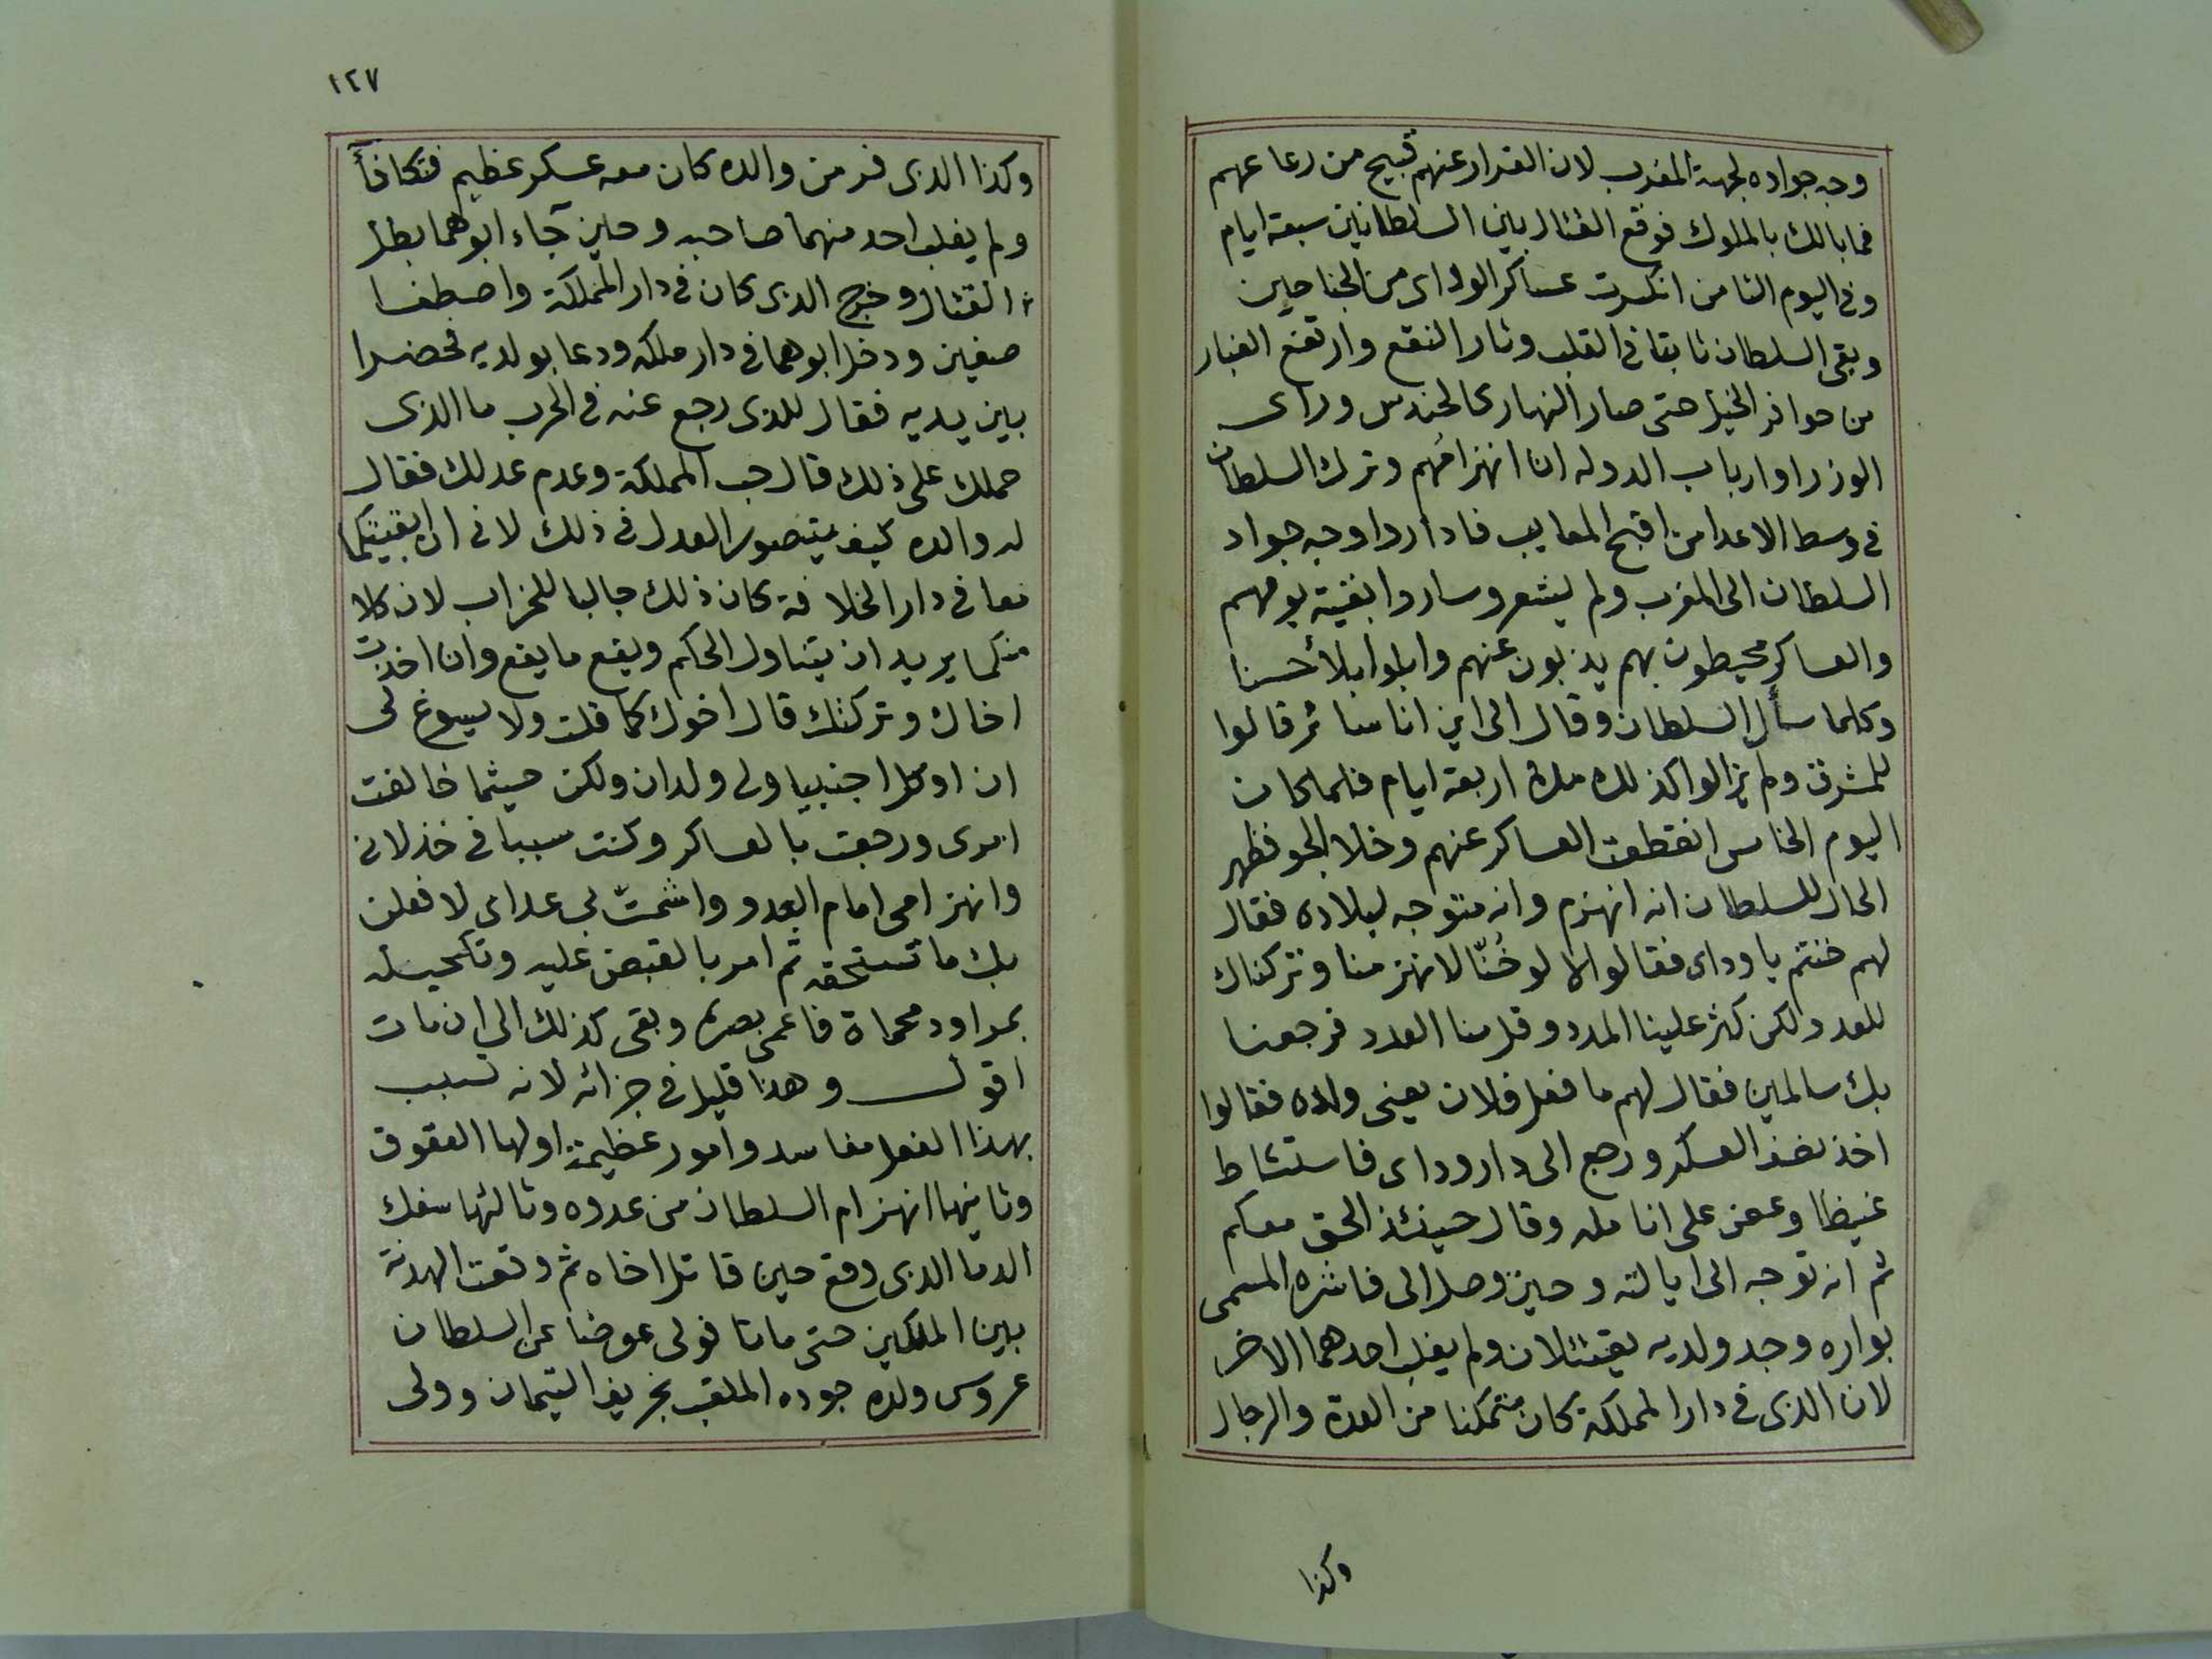 وجه جواده لجهة المغرب لان الفرار عنهم قبيح من رعاعهم
فما بالك بالملوك فوقع القتال بين السلطانين سبعة ايام
وفى اليوم الثامن انكسرت عساكر الوداى من الجناحين
وبقى السلطان ثابتا فى القلب وثار النقع وارتفع الغبار
من حوافر الخيل حتى صار النهار كالحندس وراى
الوزرا وارباب الدوله ان انهزامهم وترك السلطان
فى وسط الاعدا من اقبح المعايب فاداروا وجه جواد
السلطان الى المغرب ولم يشعر وساروا بقية يومهم
والعساكر محيطون بهم يذبون عنهم وابلوا بلأ حسنا
وكلما سأل السلطان وقال الى اين انا سائر قالوا
للمشرق ولم يزالوا كذلك مدة اربعة ايام فلما كان
اليوم الخامس انقطعت العساكر عنهم وخلا الجو فظهر
الحال للسلطان انه انهزم وانه متوجه لبلاده فقال
لهم خنتم يا وداى فقالوا لا لو خُنّا لانهزمنا وتركناك
للعدو ولكن كثر علينا المدد وقل منا العدد فرجعنا
بك سالمين فقال لهم ما فعل فلان يعنى ولده فقالوا
اخذ نصف العسكر ورجع الى دار وداى فاستشاط
غيظا وعض على انامله وقال حينئذ الحق معكم
ثم انه توجه الى ايالته وحين وصل الى فاشره المسمى
بواره وجد ولديه يقتتلان ولم يغلب احدهما الاخر
لان الذى فى دار المملكة كان متمكنا من العدة والرجال
وكذا
١٢٧
وكذا الذى فر من والده كان معه عسكر عظيم فتكافأ
ولم يغلب احد منهما صاحبه وحين جاء ابوهما بطل
القتال وخرج الذى كان فى دار المملكة واصطفا
صفين ودخل ابوهما فى دار ملكه ودعا بولديه فحضرا
بين يديه فقال للذى رجع عنه فى الحرب ما الذى
حملك على ذلك قال حب المملكة وعدم عدلك فقال
له والده كيف يتصور العدل فى ذلك لانى ان ابقيتكما
معا فى دار الخلافة كان ذلك جالبا للخراب لان كلا
منكما يريد ان يتناول الحكم ويقع ما يقع وان اخذت
اخاك وتركتك قال اخوك كما قلت ولا يسوغ لى
ان اوكل اجنبيا ولى ولدان ولكن حيثما خالفت
امرى ورجعت بالعساكر وكنت سببا فى خذلانى
وانهزامى امام العدو واشمتّ بى عداى لافعلن
بك ما تستحقه ثم امر بالقبض عليه وتكحيله
بمراود محماة فاعمى بصره وبقى كذلك الى ان مات
اقول وهذا قليل فى جزائه لانه تسبب
بهذا الفعل مفاسد وامور عظيمة اولها العقوق
وثانيها انهزام السلطان من عدوه وثالثها سفك
الدما الذى وقع حين قاتل اخاه ثم وقعت الهدنة
بين الملكين حتى ماتا فولى عوضا عن السلطان
عروس ولده جوده الملقب بخريف التيمان وولى